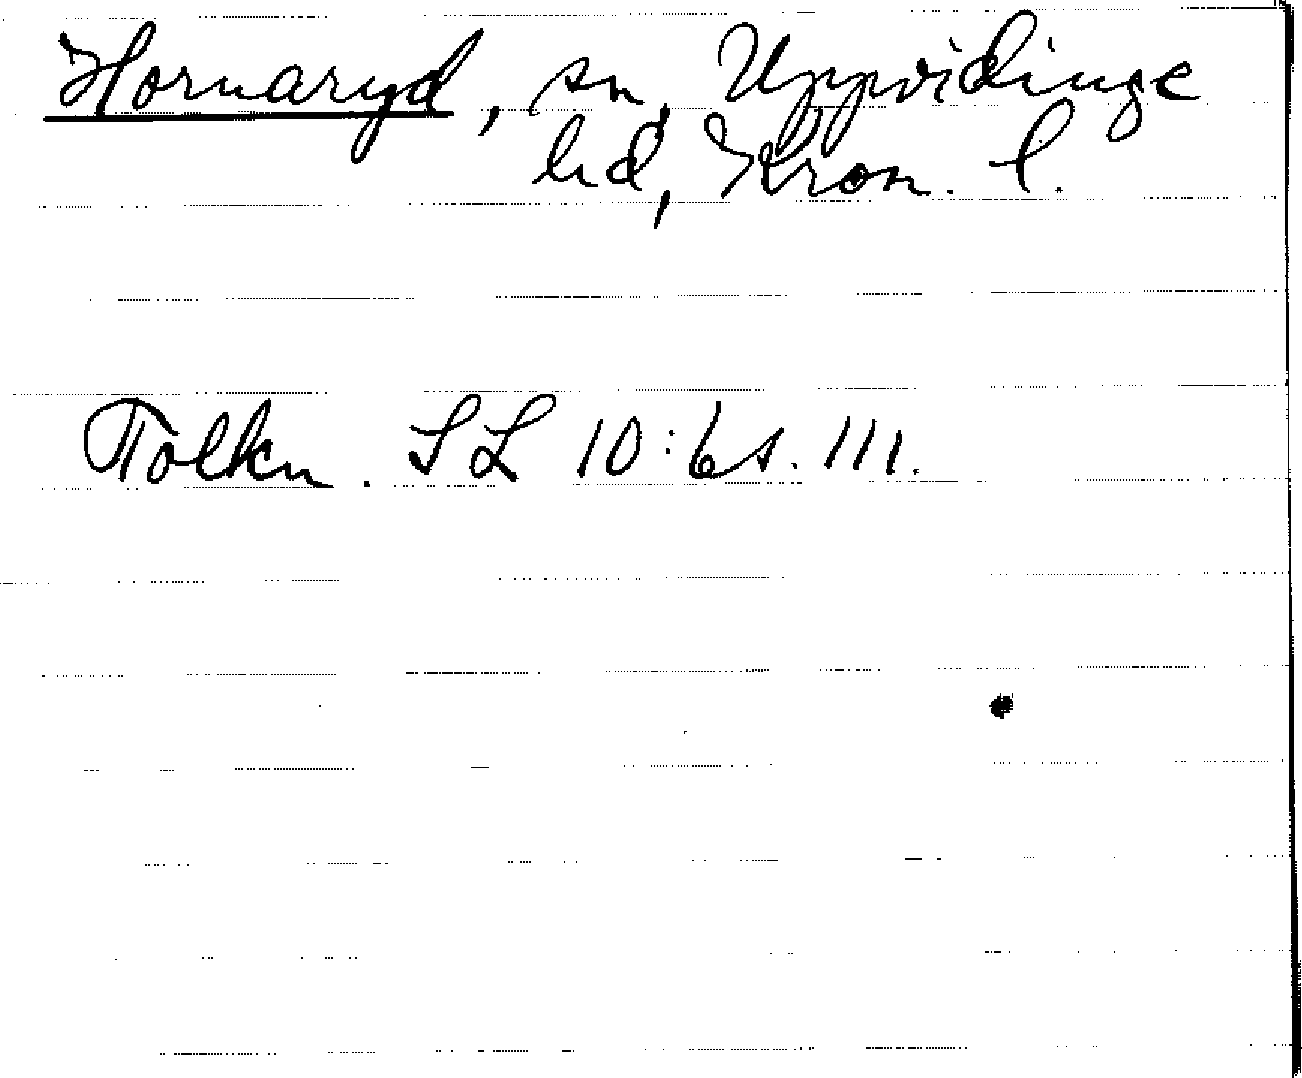 Hornaryd, sn, Uppvidinge
hd, Kron. l.
Tolkn. SL 10:6 s. 111.